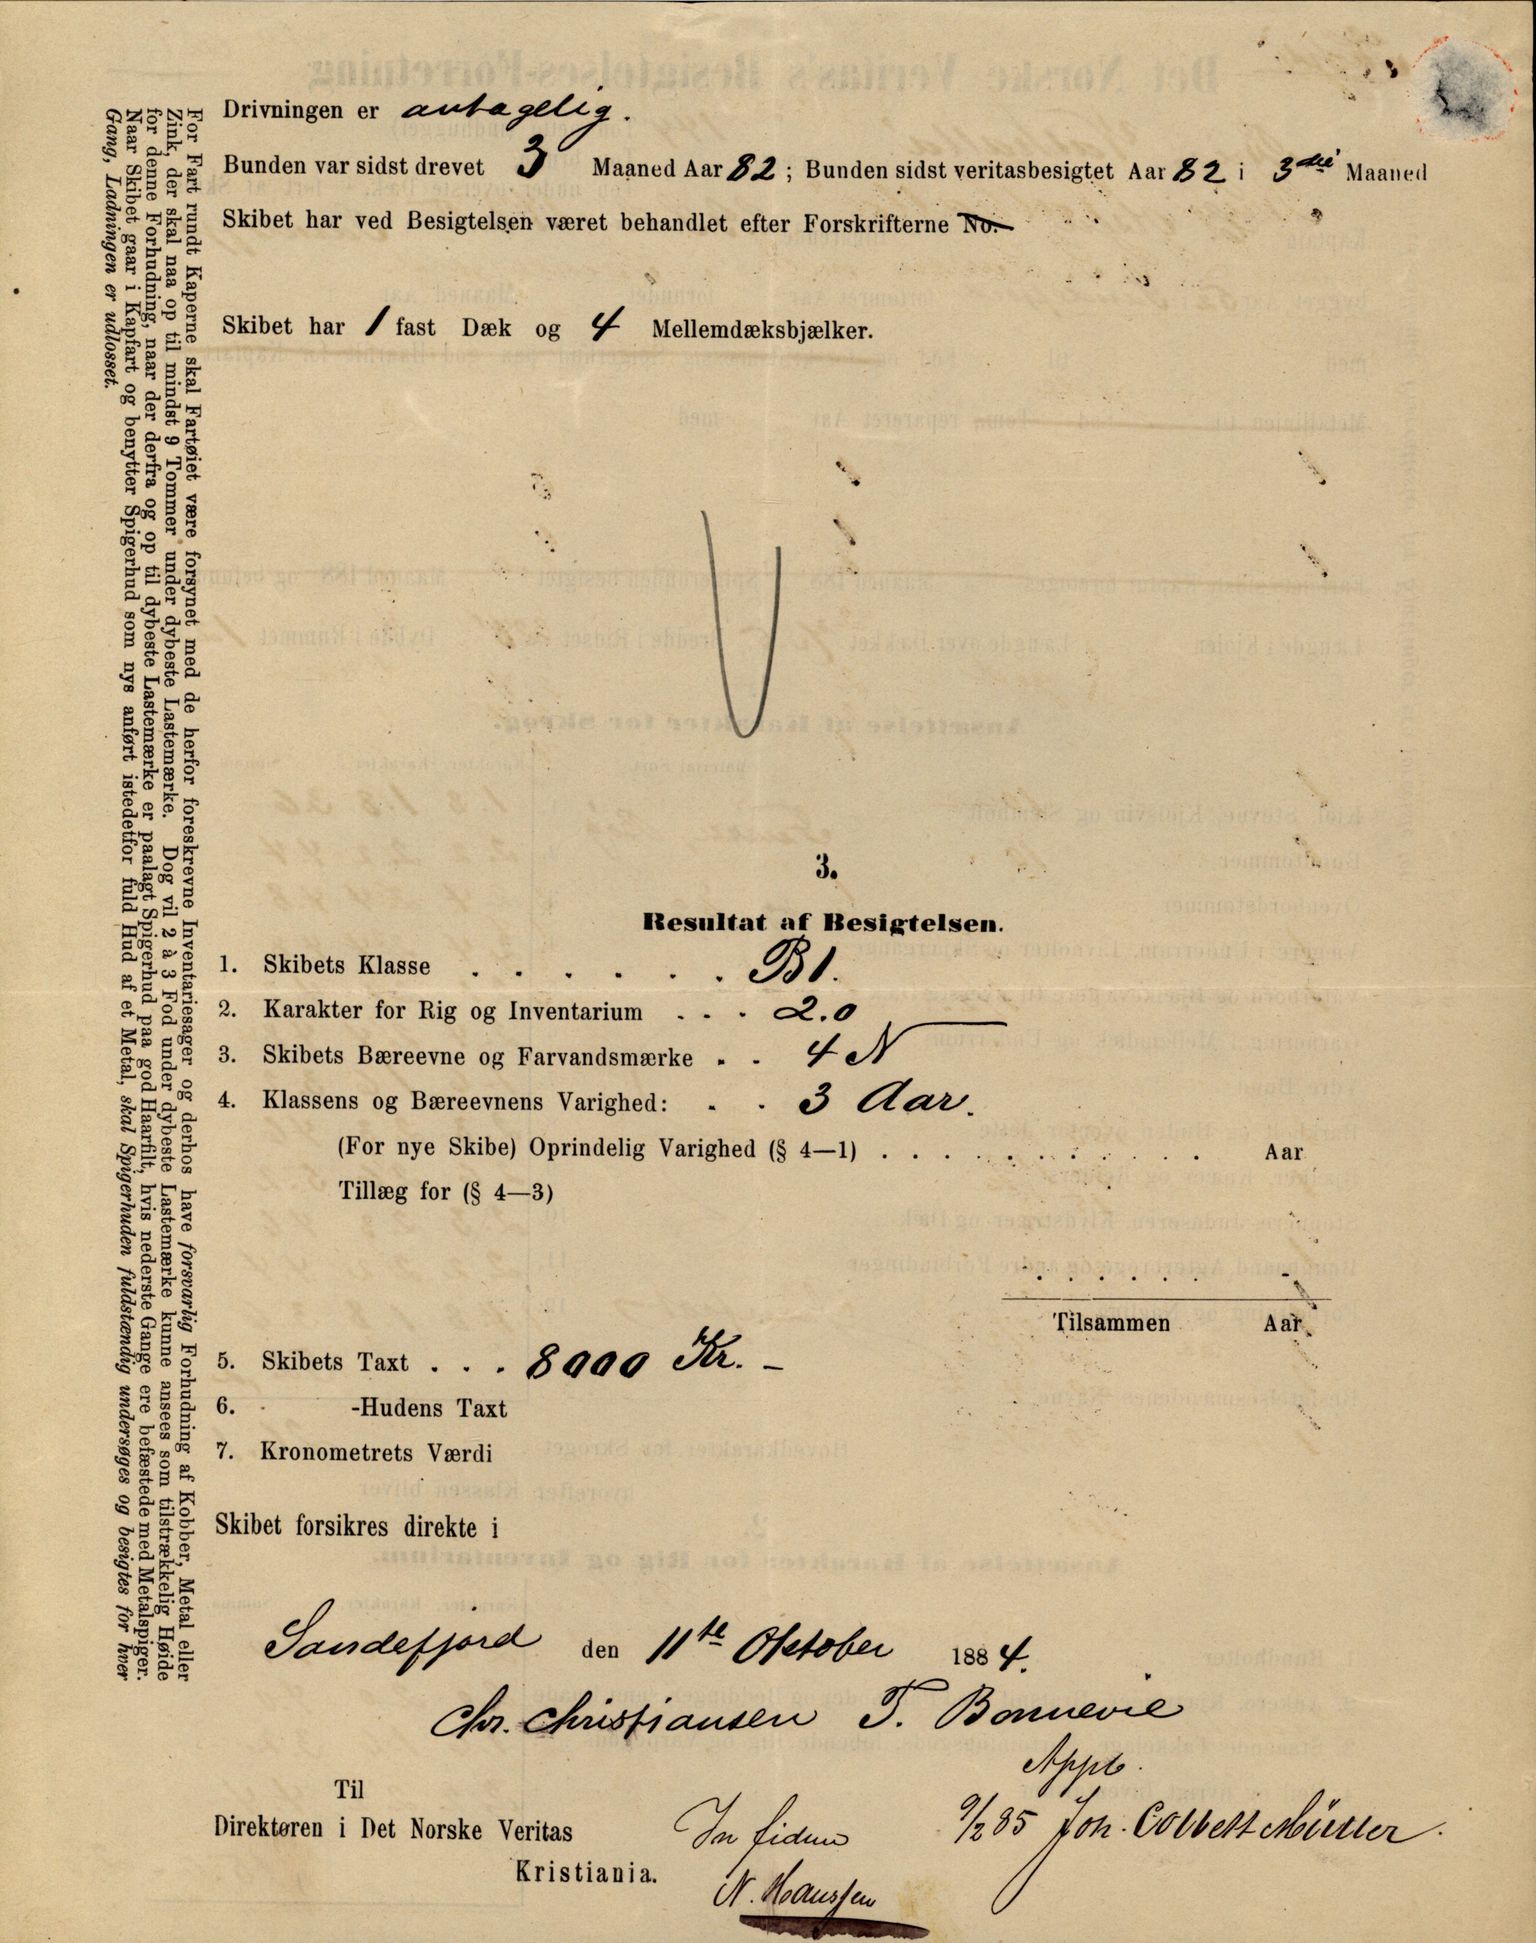 Drivningen er antagelig.
Bunden var sidst drevet 3 Maaned Aar 82; Bunden sidst veritasbesigtet Aar 82 i 3die Maaned
Skibet har ved Besigtelsen været behandlet efter Forskrifterne No.
Skibet har 1 fast Dæk og 4 Mellemdæksbjælker.
3.
Resultat af Besigtelsen.
1. Skibets Klasse . . . . . . B1.
2. Karakter for Rig og Inventarium . . . 2.0
3. Skibets Bæreevne og Farvandsmærke . . 4 N
4. Klassens og Bæreevnens Varighed: . . 3 Aar.
(For nye Skibe) Oprindelig Varighed (§ 4—1) . . . . . . . . . . . Aar
Tillæg for (§ 4—3)
. . . . . . -
Tilsammen Aar
5. Skibets Taxt . . . 8000 Kr. –
6. -Hudens Taxt
7. Kronometrets Værdi
Skibet forsikres direkte i
Sandefjord den 11te Oktober 1884.
Chr. Christiansen T. Bonnevie
Appb.
9/2 85 Joh. Collett Müller.
Til
Direktøren i Det Norske Veritas
Kristiania.
In fidem
N. Hanssen
For Fart rundt Kaperne skal Fartøiet være forsynet med de herfor foreskrevne Inventariesager og derhos have forsvarlig Forhudning af Kobber, Metal eller
Zink, der skal naa op til mindst 9 Tommer under dybeste Lastemærke. Dog vil 2 à 3 Fod under dybeste Lastemærke kunne ansees som tilstrækkelig Høide
for denne Forhudning, naar der derfra og op til dybeste Lastemærke er paalagt Spigerhud paa god Haarfilt, hvis nederste Gange ere befæstede med Metalspiger.
Naar Skibet gaar i Kapfart og benytter Spigerhud som nys anført istedetfor fuld Hud af et Metal, skal Spigerhuden fuldstændig undersøges og besigtes for hver
Gang, Ladningen er udlosset.